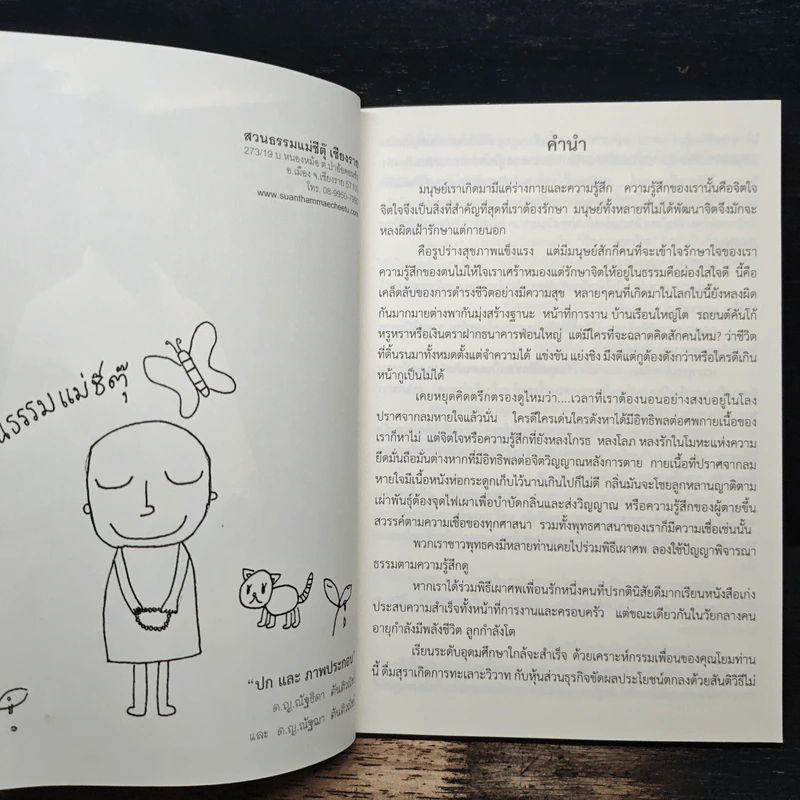 สวนธรรมแม่ชีตุ๊ เชียงราย
273/19 บ.หนองหม้อ ต.ป่าอ้อดอนชัย
อ.เมือง จ.เชียงราย 57100
โทร. 08-9950-7980
www.suanthammaecheetu.com
ธรรมแม่ชีตุ๊
"ปก และ ภาพประกอบ"
ด.ญ.ณัฐธิดา
และ ด.ญ.ณัฐฌา
คำนำ
มนุษย์เราเกิดมามีแค่ร่างกายและความรู้สึก ความรู้สึกของเรานั้นคือจิตใจ
จิตใจจึงเป็นสิ่งที่สำคัญที่สุดที่เราต้องรักษา มนุษย์ทั้งหลายที่ไม่ได้พัฒนาจิตจึงมักจะ
หลงผิดเฝ้ารักษาแต่กายนอก
คือรูปร่างสุขภาพแข็งแรง แต่มีมนุษย์สักกี่คนที่จะเข้าใจรักษาใจของเรา
ความรู้สึกของตนไม่ให้ใจเราเศร้าหมองแต่รักษาจิตให้อยู่ในธรรมคือผ่องใสใจดี นี้คือ
เคล็ดลับของการดำรงชีวิตอย่างมีความสุข หลายๆคนที่เกิดมาในโลกใบนี้ยังหลงผิด
กันมากมายต่างพากันมุ่งสร้างฐานะ หน้าที่การงาน บ้านเรือนใหญ่โต รถยนต์คันโก้
หรูหราหรือเงินตราฝากธนาคารฟ่อนใหญ่ แต่มีใครที่จะฉลาดคิดสักคนไหม? ว่าชีวิต
ที่ดิ้นรนมาทั้งหมดตั้งแต่จำความได้ แข่งขัน แย่งชิง มึงดีแต่กูต้องดังกว่าหรือใครดีเกิน
หน้ากูเป็นไม่ได้
เคยหยุดคิดตรึกตรองดูไหมว่า....เวลาที่เราต้องนอนอย่างสงบอยู่ในโลง
ปราศจากลมหายใจแล้วนั่น ใครดีใครเด่นใครดังหาได้มีอิทธิพลต่อศพกายเนื้อของ
เราก็หาไม่ แต่จิตใจหรือความรู้สึกที่ยังหลงโกรธ หลงโลภ หลงรักในโมหะแห่งความ
ยึดมั่นถือมั่นต่างหากที่มีอิทธิพลต่อจิตวิญญาณหลังการตาย กายเนื้อที่ปราศจากลม
หายใจมีเนื้อหนังห่อกระดูกเก็บไว้นานเกินไปก็ไม่ดี กลิ่นมันจะโชยลูกหลานญาติตาม
เผ่าพันธุ์ต้องจุดไฟเผาเพื่อบำบัดกลิ่นและส่งวิญญาณ หรือความรู้สึกของผู้ตายขึ้น
สวรรค์ตามความเชื่อของทุกศาสนา รวมทั้งพุทธศาสนาของเราก็มีความเชื่อเช่นนั้น
พวกเราชาวพุทธคงมีหลายท่านเคยไปร่วมพิธีเผาศพ ลองใช้ปัญญาพิจารณา
ธรรมตามความรู้สึกดู
หากเราได้ร่วมพิธีเผาศพเพื่อนรักหนึ่งคนที่ปรกตินิสัยดีมากเรียนหนังสือเก่ง
ประสบความสำเร็จทั้งหน้าที่การงานและครอบครัว แต่ขณะเดียวกันในวัยกลางคน
อายุกำลังมีพลังชีวิต ลูกกำลังโต
เรียนระดับอุดมศึกษาใกล้จะสำเร็จ ด้วยเคราะห์กรรมเพื่อนของคุณโยมท่าน
นี้ ดื่มสุราเกิดการทะเลาะวิวาท กับหุ้นส่วนธุรกิจขัดผลประโยชน์ตกลงด้วยสันติวิธีไม่